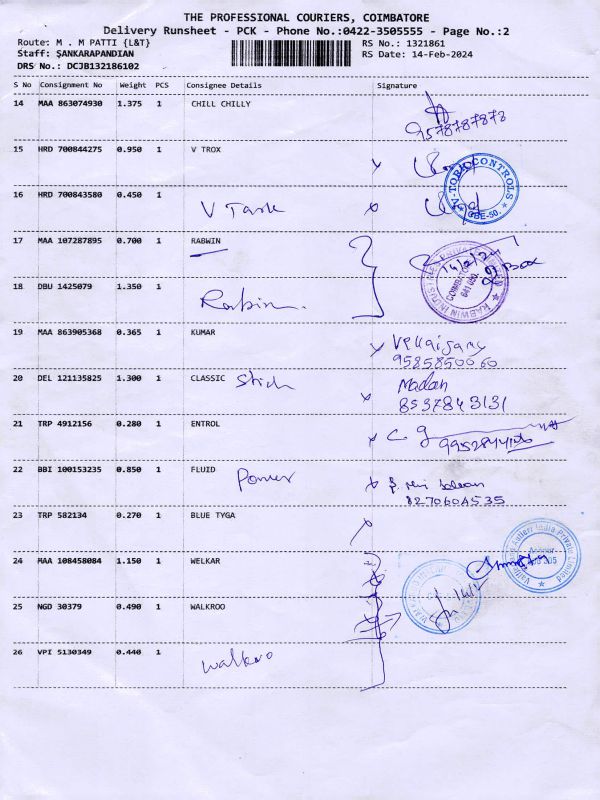 THE PROFESSIONAL COURIERS, COIMBATORE
Delivery Runsheet - PCK - Phone No.:0422-3505555 - Page No.:2
Route: M . M PATTI {L&T} RS No.: 1321861
Staff: SANKARAPANDIAN RS Date: 14-Feb-2024
DRS No.: DCJB132186102
S No Consignment No Weight PCS Consignee Details Signature
14 MAA 863074930 1.375 1 CHILL CHILLY
9578787878
15 HRD 700844275 0.950 1 V TROX
V-TORQ CONTROLS
CBE-50.
16 HRD 700843580 0.450 1
V Tark
17 MAA 107287895 0.700 1 RABWIN
RABWIN INDUSTRIES PRIVATE
COIMBATORE
641 050.
18 DBU 1425079 1.350 1
Rabin
19 MAA 863905368 0.365 1 KUMAR
9585850060
20 DEL 121135825 1.300 1 CLASSIC Stich
Madan
8537843131
21 TRP 4912156 0.280 1 ENTROL
C g
22 BBI 100153235 0.850 1 FLUID Power
8270604535
23 TRP 582134 0.270 1 BLUE TYGA
India Private Limited
24 MAA 108458084 1.150 1 WELKAR
25 NGD 30379 0.490 1 WALKROO
26 VPI 5130349 0.440 1
walkroo